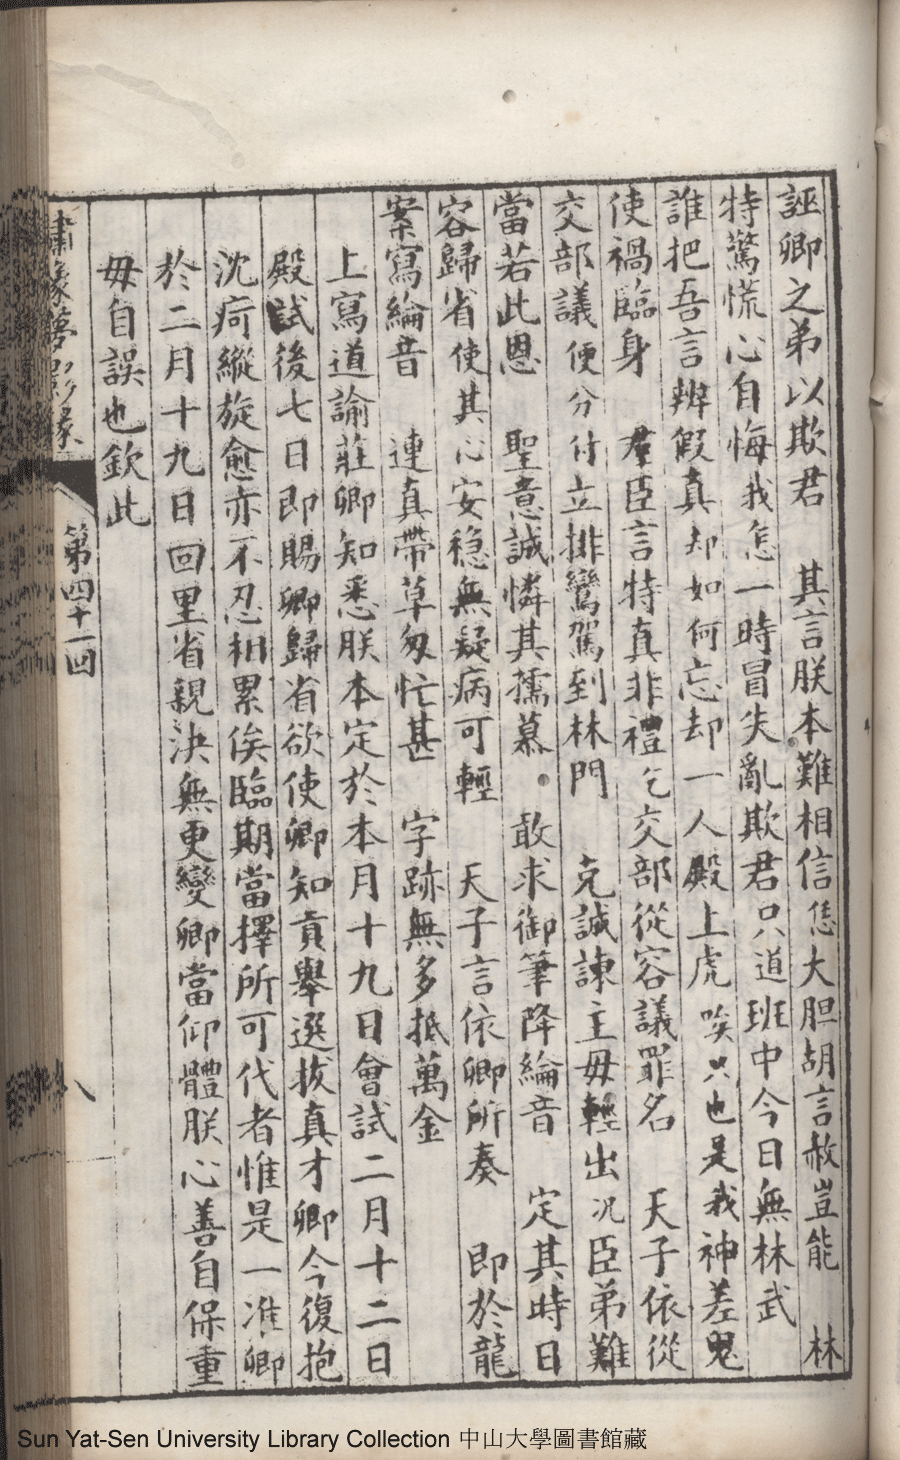 誣卿之弟以欺君　其言朕本難相信恁大胆胡言赦豈能　林
特驚慌心自悔我怎一時冒失亂欺君只道班中今日無林武
誰把吾言辨假真却如何忘却一人殿上虎唉只也是我神差鬼
使禍臨身　羣臣言特真非禮乞交部從容議罪名　天子依從
交部議便分付立排鸞駕到林門　克誠諫主毋輕出况臣弟難
當若此恩　聖意誠憐其孺慕　敢求御筆降綸音　定其時日
容歸省使其心安穩無疑病可輕　天子言依卿所奏　即於龍
案寫綸音　連真帶草匆忙甚　字跡無多抵萬金
上寫道諭莊卿知悉朕本定於本月十九日會試二月十二日
殿試後七日即賜卿歸省欲使卿知貢舉選拔真才卿今復抱
沈疴縱旋愈亦不忍相累俟臨期當擇所可代者惟是一准卿
於二月十九日回里省親決無更變卿當仰體朕心善自保重
毋自誤也欽此
夢影緣
第四十一回
八
Sun Yat-Sen University Library Collection 中山大學圖書館藏